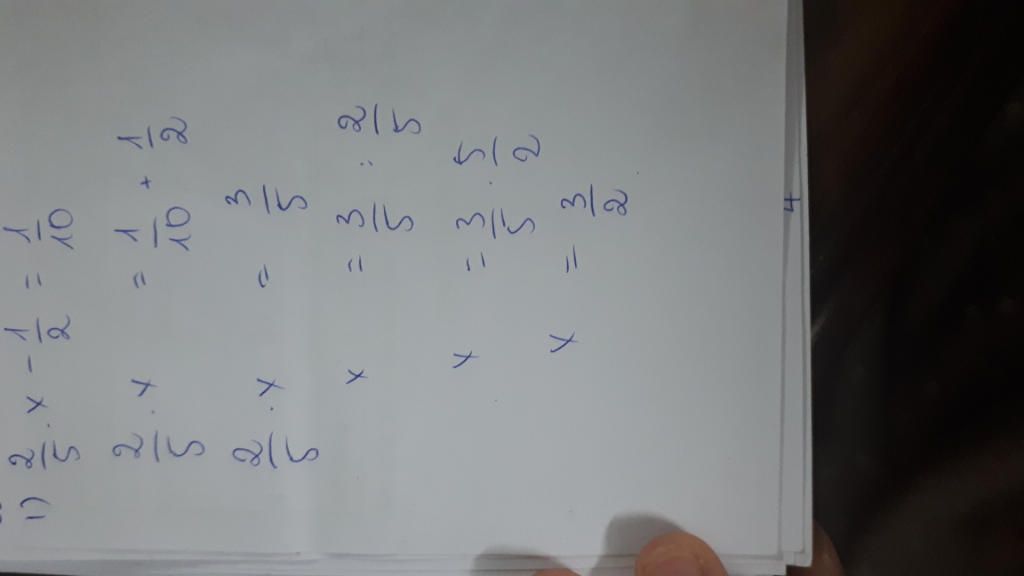 1) 2/5 . x - 1/2 = 1/10
2/5 . x = 1/10 + 1/2
2/5 . x = 3/5
x = 3/5 : 2/5
x = 3/5 . 5/2
x = 3/2